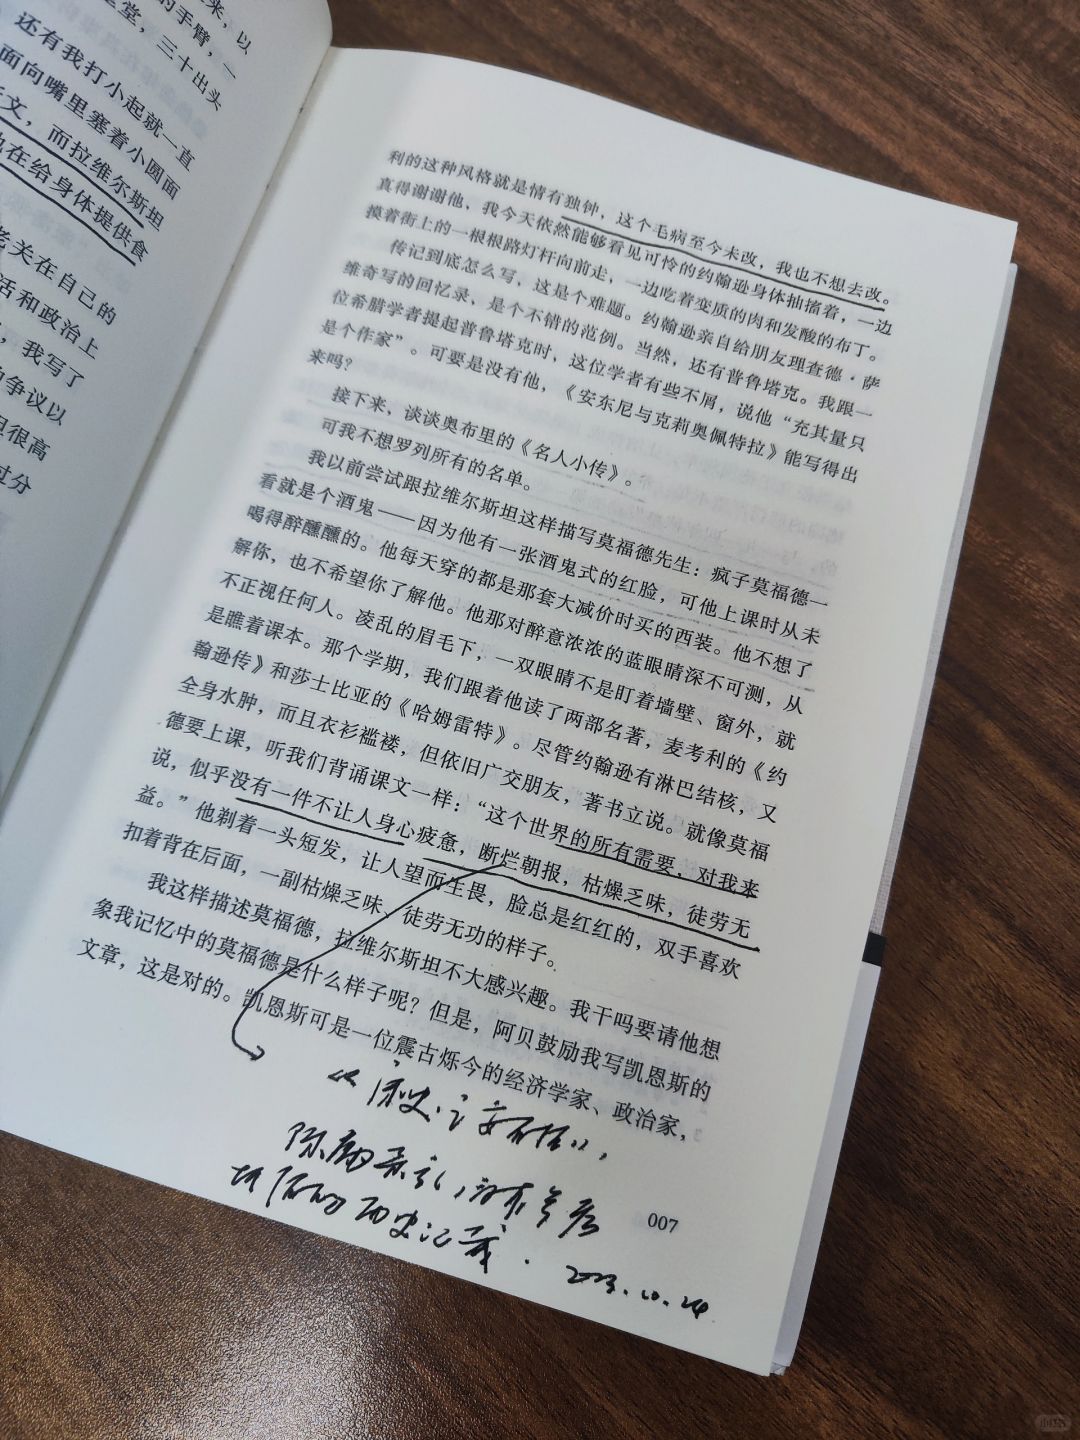 来，以
的手臂，一
堂，三十出头
还有我打小起就一直
面向嘴里塞着小圆面
文，而拉维尔斯坦
也在给身体提供食
老关在自己的
活和政治上
，我写了
的争议以
但很高
过分
利的这种风格就是情有独钟，这个毛病至今未改，我也不想去改。
真得谢谢他，我今天依然能够看见可怜的约翰逊身体抽搐着，一边
摸着街上的一根根路灯杆向前走，一边吃着变质的肉和发酸的布丁。
传记到底怎么写，这是个难题。约翰逊亲自给朋友理查德·萨
维奇写的回忆录，是个不错的范例。当然，还有普鲁塔克。我跟一
位希腊学者提起普鲁塔克时，这位学者有些不屑，说他“充其量只
是个作家”。可要是没有他，《安东尼与克莉奥佩特拉》能写得出
来吗？
接下来，谈谈奥布里的《名人小传》。
可我不想罗列所有的名单。
我以前尝试跟拉维尔斯坦这样描写莫福德先生：疯子莫福德一
看就是个酒鬼——因为他有一张酒鬼式的红脸，可他上课时从未
喝得醉醺醺的。他每天穿的都是那套大减价时买的西装。他不想了
解你，也不希望你了解他。他那对醉意浓浓的蓝眼睛深不可测，从
不正视任何人。凌乱的眉毛下，一双眼睛不是盯着墙壁、窗外，就
是瞧着课本。那个学期，我们跟着他读了两部名著，麦考利的《约
翰逊传》和莎士比亚的《哈姆雷特》。尽管约翰逊有淋巴结核，又
全身水肿，而且衣衫褴褛，但依旧广交朋友，著书立说。就像莫福
德要上课，听我们背诵课文一样：“这个世界的所有需要，对我来
说，似乎没有一件不让人身心疲惫，断烂朝报，枯燥乏味，徒劳无
益。”他剃着一头短发，让人望而生畏，脸总是红红的，双手喜欢
扣着背在后面，一副枯燥乏味、徒劳无功的样子。
我这样描述莫福德，拉维尔斯坦不大感兴趣。我干吗要请他想
象我记忆中的莫福德是什么样子呢？但是，阿贝鼓励我写凯恩斯的
文章，这是对的。凯恩斯可是一位震古烁今的经济学家、政治家，
《宋史·王安石传》，
陈腐杂乱，没有参考
价值的历史记载．
2023.10.24
007